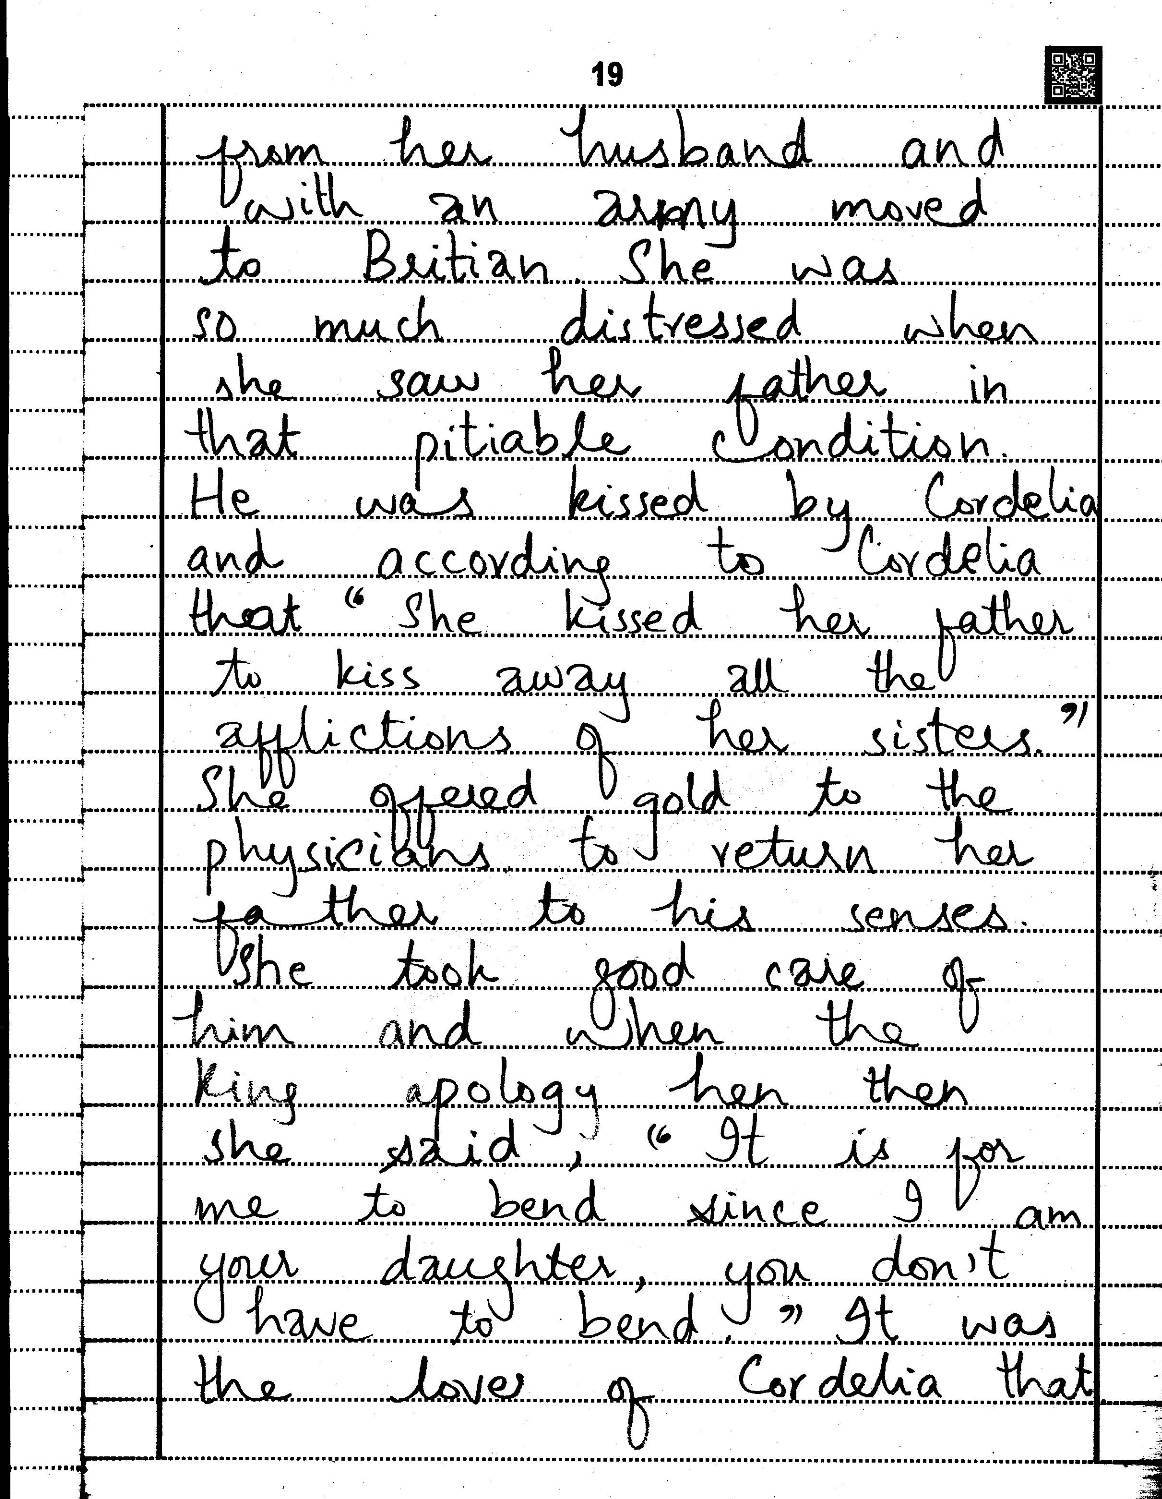 19
from her husband and
with an army moved
to Britian. She was
so much distressed when
she saw her father in
that pitiable condition.
He was kissed by Cordelia
and according to Cordelia
that "She kissed her father
to kiss away all the
afflictions of her sisters."
She offered gold to the
physicians to return her
father to his senses.
She took good care of
him and when the
King apology her then
she said, "It is for
me to bend since I am
your daughter, you don't
have to bend." It was
the love of Cordelia that